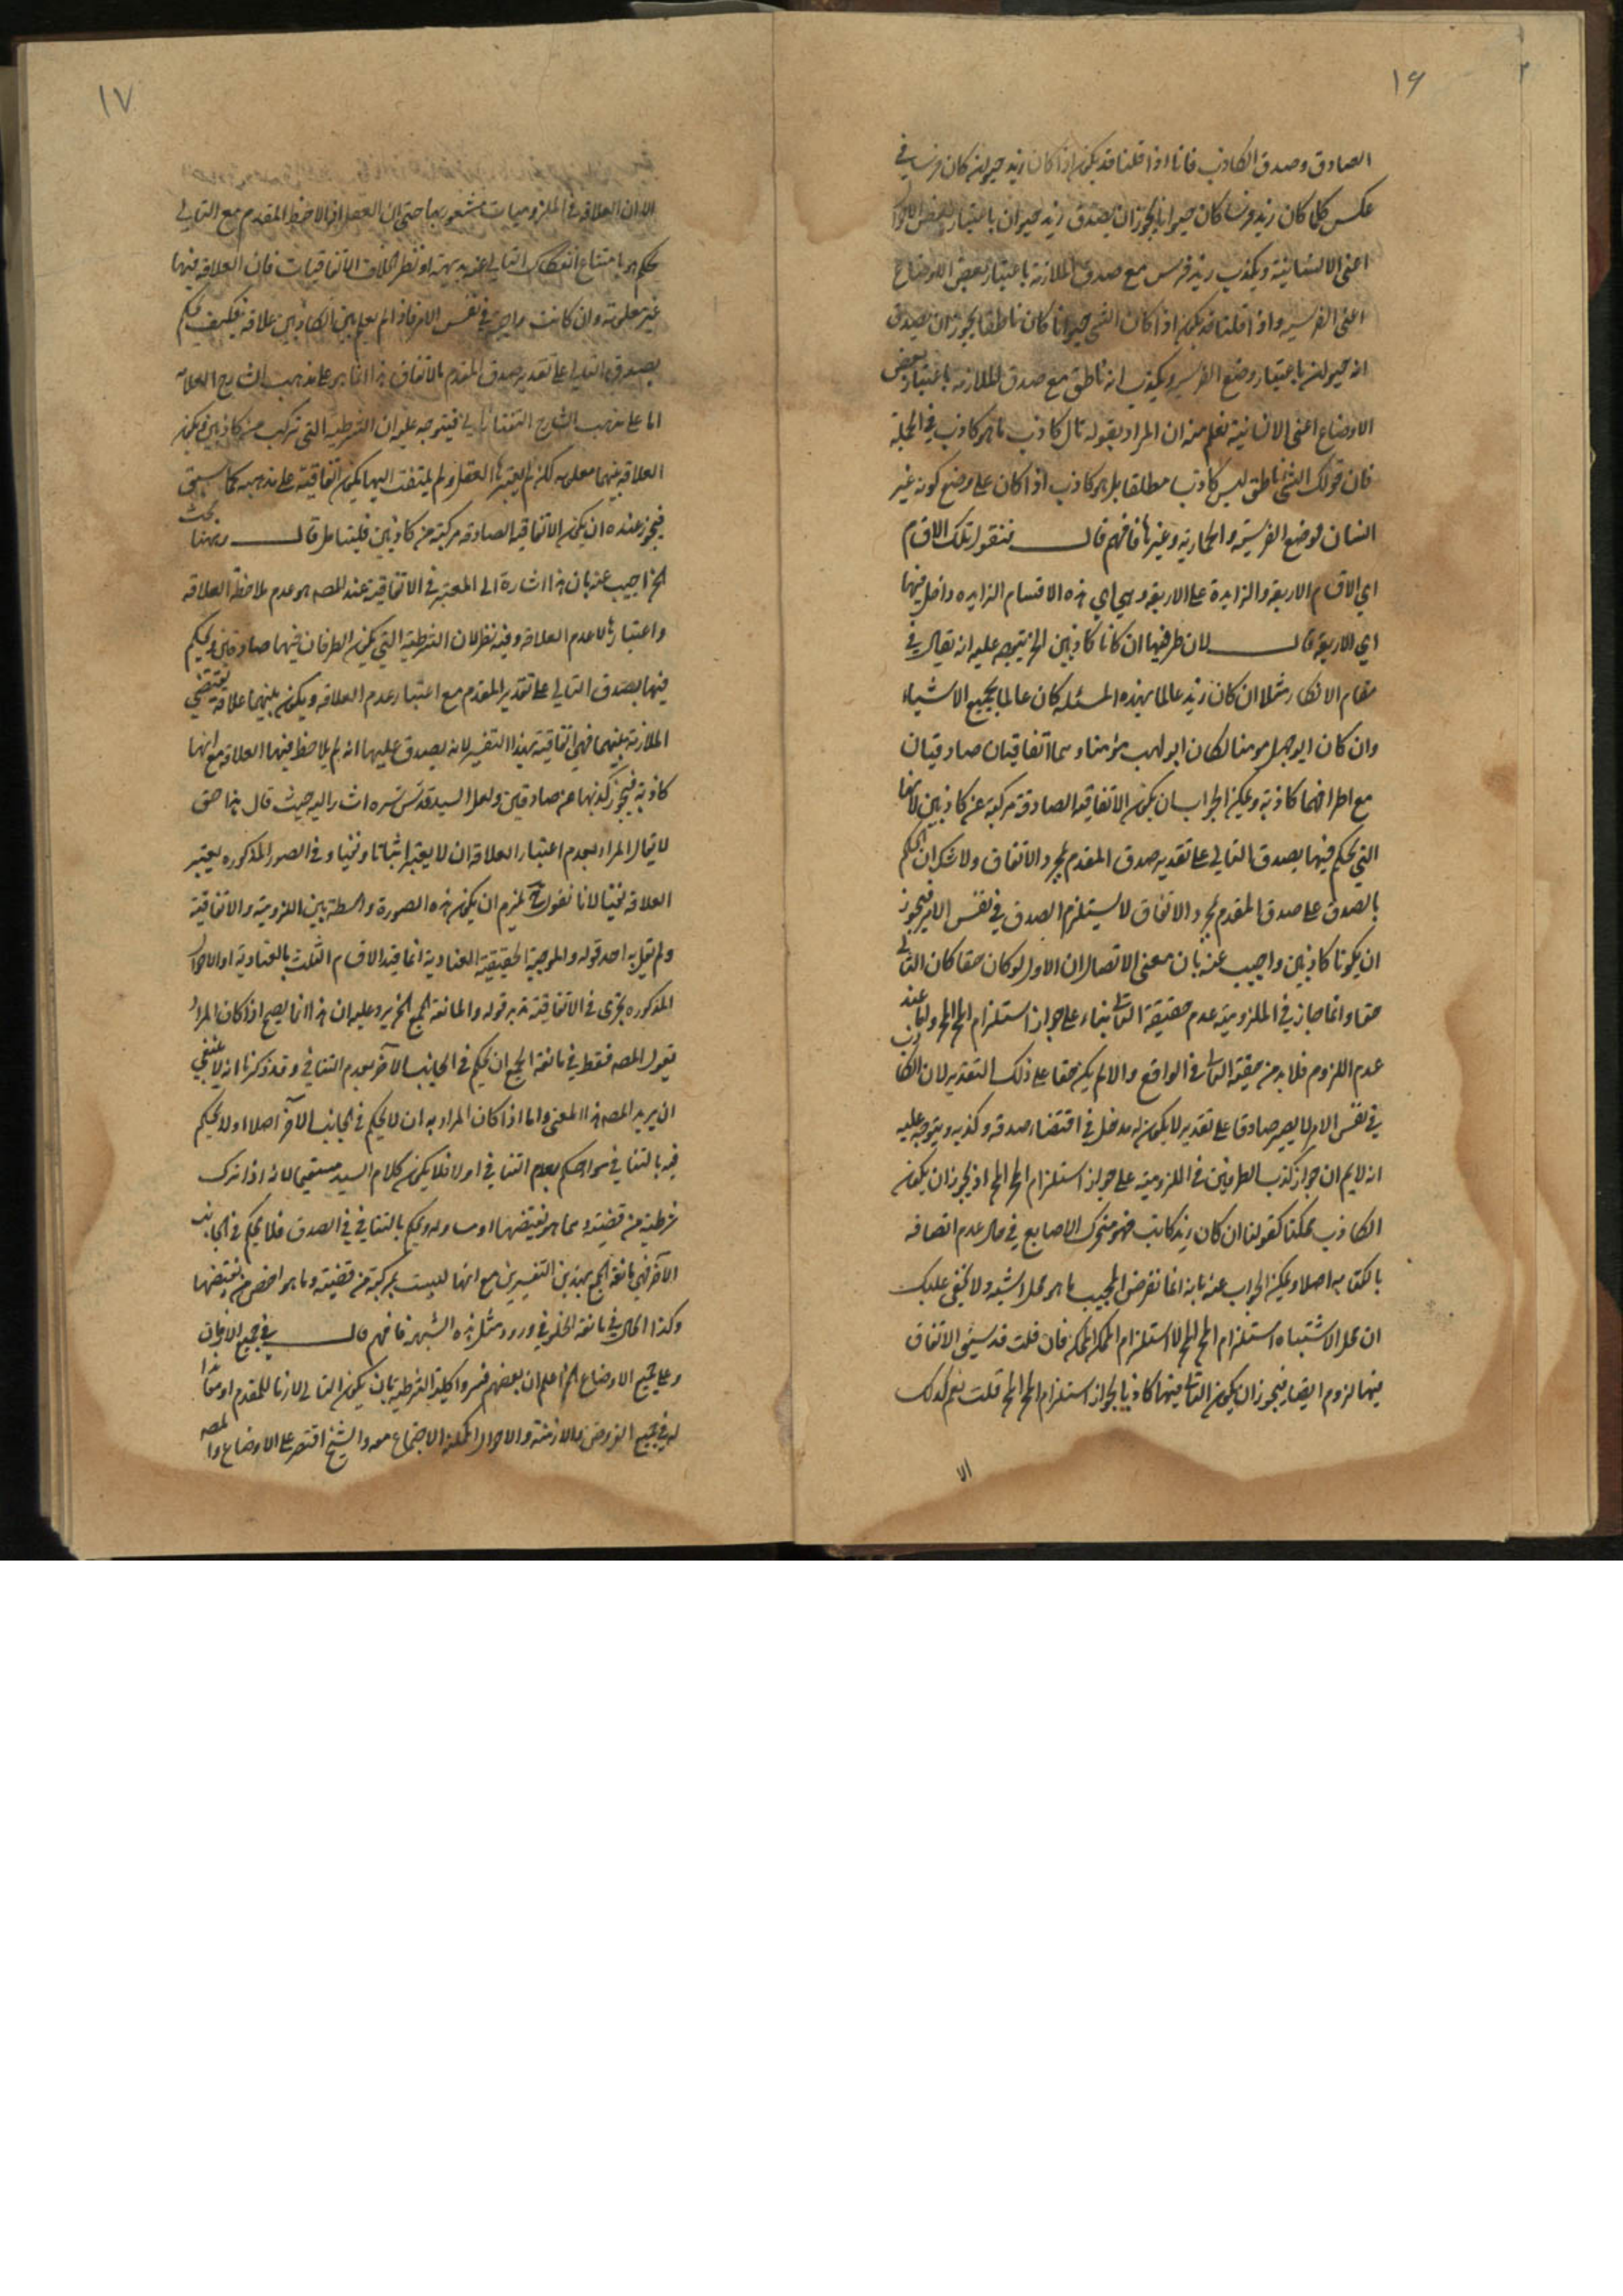 ١٦
الصادق وصدق الكاذب فانا اذا قلنا قد يكون اذا كان زيد حيوانا كان فرسا في
عكس كلما كان زيد فرسا كان حيوانا يجوز ان يصدق زيد حيوان باعتبار بعض الاوضاع
اعنى الانسانية ويكذب زيد فرس مع صدق الملازمة باعتبار بعض الاوضاع
اعنى الفرسية واذا قلنا قد يكون اذا كان الشئ حيوانا كان ناطقا يجوز ان يصدق
انه حيوان باعتبار وضع الفرسية ويكذب انه ناطق مع صدق الملازمة باعتبار بعض
الاوضاع اعنى الانسانية فعلم منه ان المراد بقوله تال كاذب ما هو كاذب في الجملة
فان قولك الشئ ناطق ليس كاذبا مطلقا بل هو كاذب اذا كان على وضع كونه غير
انسان كوضع الفرسية والحمارية وغيرها فافهم قال فنقول تلك الاقسام
اي الاقسام الاربعة والزايدة على الاربعة وهي اي هذه الاقسام الزايدة داخل فيها
اي الاربعة قال لان طرفيها ان كانا كاذبين الخ يتوجه عليه انه يقال في
مقام الانكار مثلا ان كان زيد عالما بهذه المسئلة كان عالما بجميع الاشياء
وان كان ابو جهل مومنا لكان ابو لهب مؤمنا وهما اتفاقيتان صادقتان
مع اطرافهما كاذبة ويمكن الجواب بان يكون الاتفاقية الصادقة مركبة عن كاذبين لانها
التي يحكم فيها بصدق التالي على تقدير صدق المقدم لمجرد الاتفاق ولا شك ان الحكم
بالصدق على صدق المقدم لمجرد الاتفاق لا يستلزم الصدق في نفس الامر فيجوز
ان يكونا كاذبين واجيب عنه بان معنى الاتصال ان الاول لو كان حقا كان التالي
حقا وانما جاز في اللزومية عدم حقيقة التالي بناء على جواز استلزام المح المح ولما عند
عدم اللزوم فلا بد من حقيقة التالي في الواقع والا لم يكن حقا على ذلك التقدير لان الكاذب
في نفس الامر لا يصير صادقا على تقدير لا يكون له مدخل في اقتضاء صدقه وكذبه ويتوجه عليه
انه لا يم ان جواز كذب الطرفين في اللزومية على جواز استلزام المح المح اذ يجوز ان يكون
الكاذب ممكنا كقولنا ان كان زيد كاتبا فهو متحرك الاصابع في حال عدم اتصافه
بالكتابة اصلا ويمكن الجواب عنه بانه انما تعرض المجيب ما هو محل الشبهة ولا يخفى عليك
ان محل الاشتباه استلزام المح المح لا استلزام الممكن الممكن فان قلت قد سبق الاتفاق
فيها لزوم ايضا فيجوز ان يكون التالي فيها كاذبا لجواز استلزام المح المح قلت نعم كذلك
الا
١٧
الا ان العلاقة في اللزوميات مشعور بها حتى ان العقل اذا لاحظ المقدم مع التالي
حكم هو بامتناع انفكاك التالي عنه بديهة او نظرا بخلاف الاتفاقيات فان العلاقة فيها
غير معلومة وان كانت واجبة في نفس الامر فاذا لم يعلم بين الكاذبين علاقة فكيف يحكم
بصدق التالي على تقدير صدق المقدم بالاتفاق هذا انما هو على مذهب الشارح العلامة
اما على مذهب الشارح التفتازاني فيتوجه عليه ان الشرطية التي تركب من كاذبين يكون
العلاقة بينهما معلومة لكن لم يعتبرها العقل ولم يلتفت اليها يكون اتفاقية على مذهبه كما سبق
فيجوز عنده ان يكون الاتفاقية الصادقة مركبة من كاذبين فليتامل قال وههنا بحث
الخ اجيب عنه بان هذا اشارة الى المعتبر في الاتفاقية عند المصـ هو عدم ملاحظة العلاقة
واعتبارها لا عدم العلاقة وفيه نظر لان الشرطية التي يكون الطرفان فيها صادقين ويحكم
فيها بصدق التالي على تقدير المقدم مع اعتبار عدم العلاقة ويكون بينهما علاقة يقتضي
الملازمة بينهما فهي اتفاقية بهذا التفسير لانه يصدق عليها انه لم يلاحظ فيها العلاقة مع انها
كاذبة فيجوز كذبها عن صادقين ولعل السيد قدس سره اشار اليه حيث قال هذا حق
لا يقال المراد بعدم اعتبار العلاقة ان لا يعتبر اثباتا ونفيا وفي الصور المذكورة يعتبر
العلاقة نفيا لانا نقول يلزم ان يكون هذه الصورة واسطة بين اللزومية والاتفاقية
ولم يقل به احد قوله والموجبة الحقيقية العنادية انما قيد الاقسام الثلث بالعنادية
المذكورة يجزى في الاتفاقية تدبر قوله والمانعة الجمع الخ يرد عليه ان هذا انما يصح اذا كان المراد
بقول المصـ فقط في مانعة الجمع ان يحكم في الجانب الآخر بعدم التنافي وقد ذكرنا انه لا ينبغي
ان يريد المصـ هذا المعنى واما اذا كان المراد به ان لا يحكم في الجانب الآخر اصلا اولا يحكم
فيه بالتنافي سواء حكم بعدم التنافي اولا فلا يكون كلام السيد مستقيما لانه اذا تركب
شرطية من قضيتة وما هو نقيضها او مساو له ويحكم بالتنافي في الصدق فلا يحكم في الجانب
الآخر فهي مانعة الجمع بهذين التفسيرين مع انها ليست بمركبة من قضيته وما هو اخص من نقيضها
وكذا الحال في مانعة الخلو في ورود مثل هذه الشبهة فافهم قال في جميع الازمان
وعلى جميع الاوضاع الخ اعلم ان بعضهم فسروا كلية الشرطية بان يكون التالي لازما للمقدم او معاندا
له في جميع الفروض والازمنة والاحوال الممكنة الاجتماع معه والشيخ اقتصر على الاوضاع والمصـ